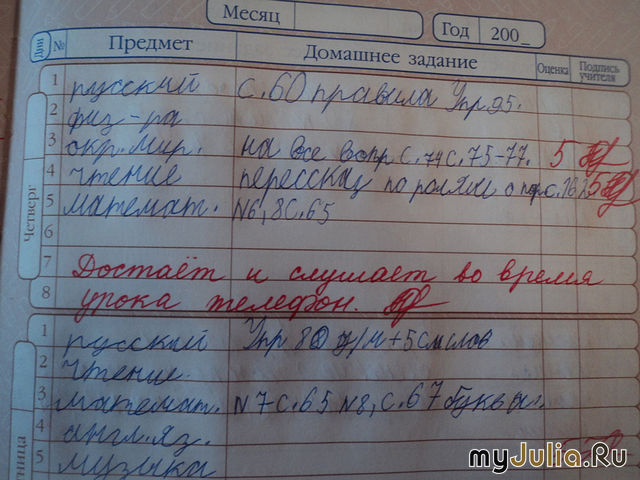 Месяц
Год 200_
Дни № Предмет Домашнее задание Оценка Подпись учителя
Четверг
1 русский с. 60 правила Упр 95.
2 физ-ра
3 окр. мир. на все вопр с. 74 с. 75-77. 5
4 чтение перессказ по ролям 5
5 математ. N6, 8 с. 65
6
7 Достаёт и слушает во время
8 урока телефон.
1 русский Упр 80 + 5 см слов
2 чтение.
3 математ. N 7 с. 65 N 8, с. 67 буква
4 англ. яз.
5 музыка
тница
myJulia.Ru